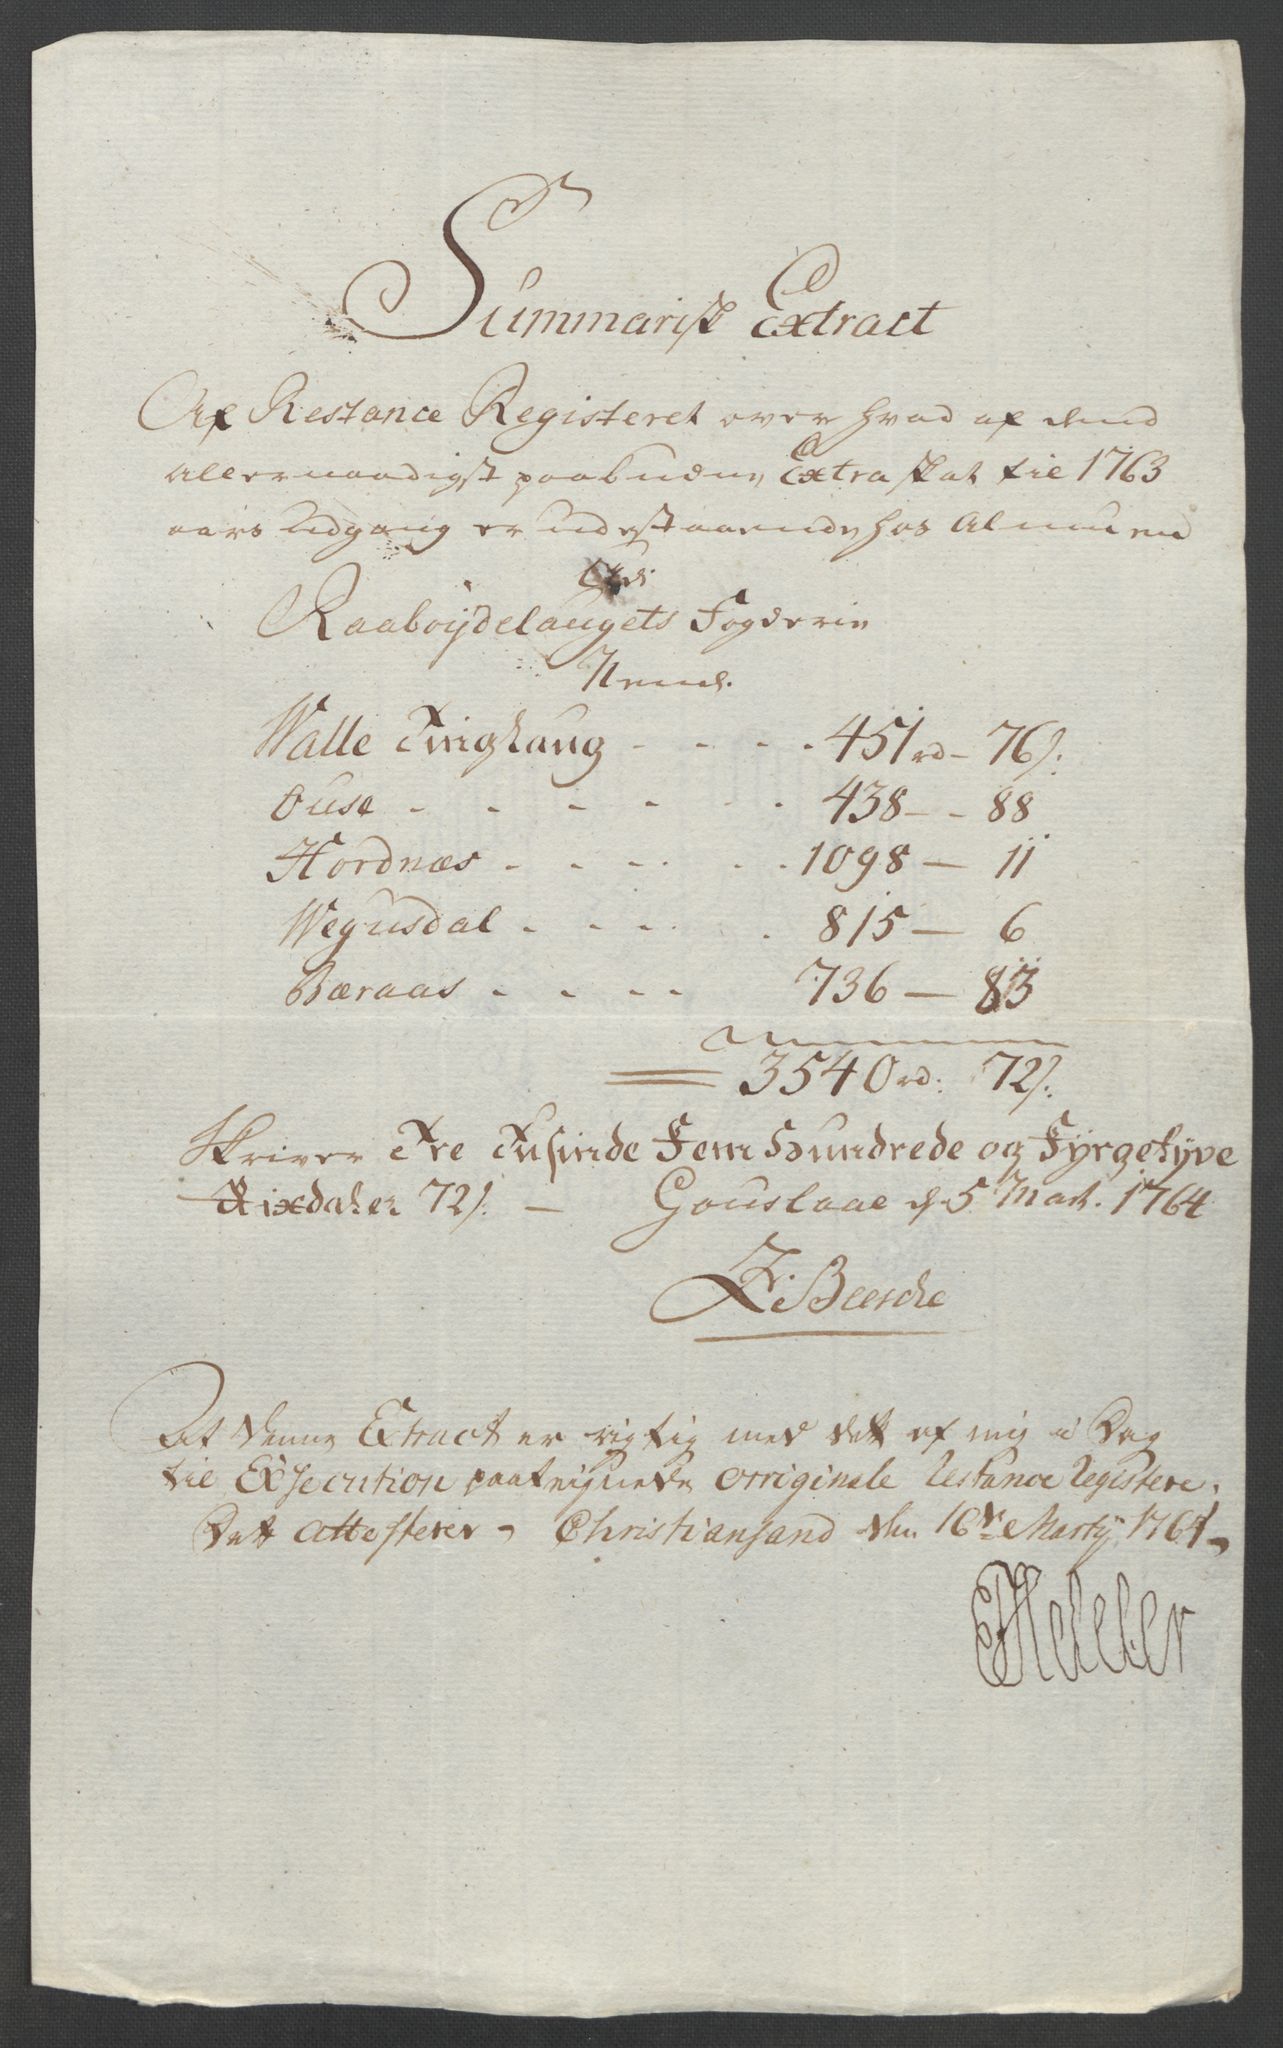 Summarisk Extract
Af Restance Registeret over hvad af dend
allernaadigst paabudne Extra Skat til 1763
aars Udgang er udestaaende hos Almuen
udi
Raabøÿdelaugets Fogderie
Neml.
Walle Tinglaug - - - - 451 rd - 76 s.
Ouse - - - - - - 438 - - 88
Hordnæs - - - - - 1098 - 11
Wegusdal - - - - 815 - 6
Bæraas - - - - 736 - 83
3540 rd. 72 s.
Skriver Tre Tusinde Fem Hundrede og Fÿrgetÿve
Rixdaler 72 s. - Gouslaae d. 5 Mart. 1764
Z. Beesche
At denne Extract er rigtig med dett af mig i Dag
til Exsecution paateignede orriginale Restance Registere,
Dett attesterer, Christiansand den 16de Martÿ 1764,